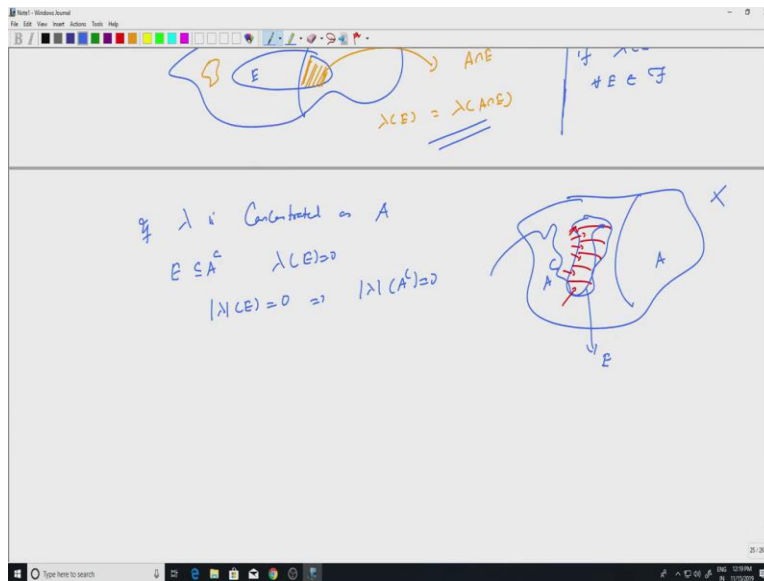 Note1 - Windows Journal
File Edit View Insert Actions Tools Help
B I
E
A∩E
λ(E) = λ(A∩E)
if λ
∀ E ∈ F
If λ is Concentrated on A
E ⊆ A^c λ(E)=0
|λ|(E)=0 ⇒ |λ|(A^c)=0
X
A^c
A
E
25 / 26
Type here to search
ENG 12:19 PM
IN 11/15/2019